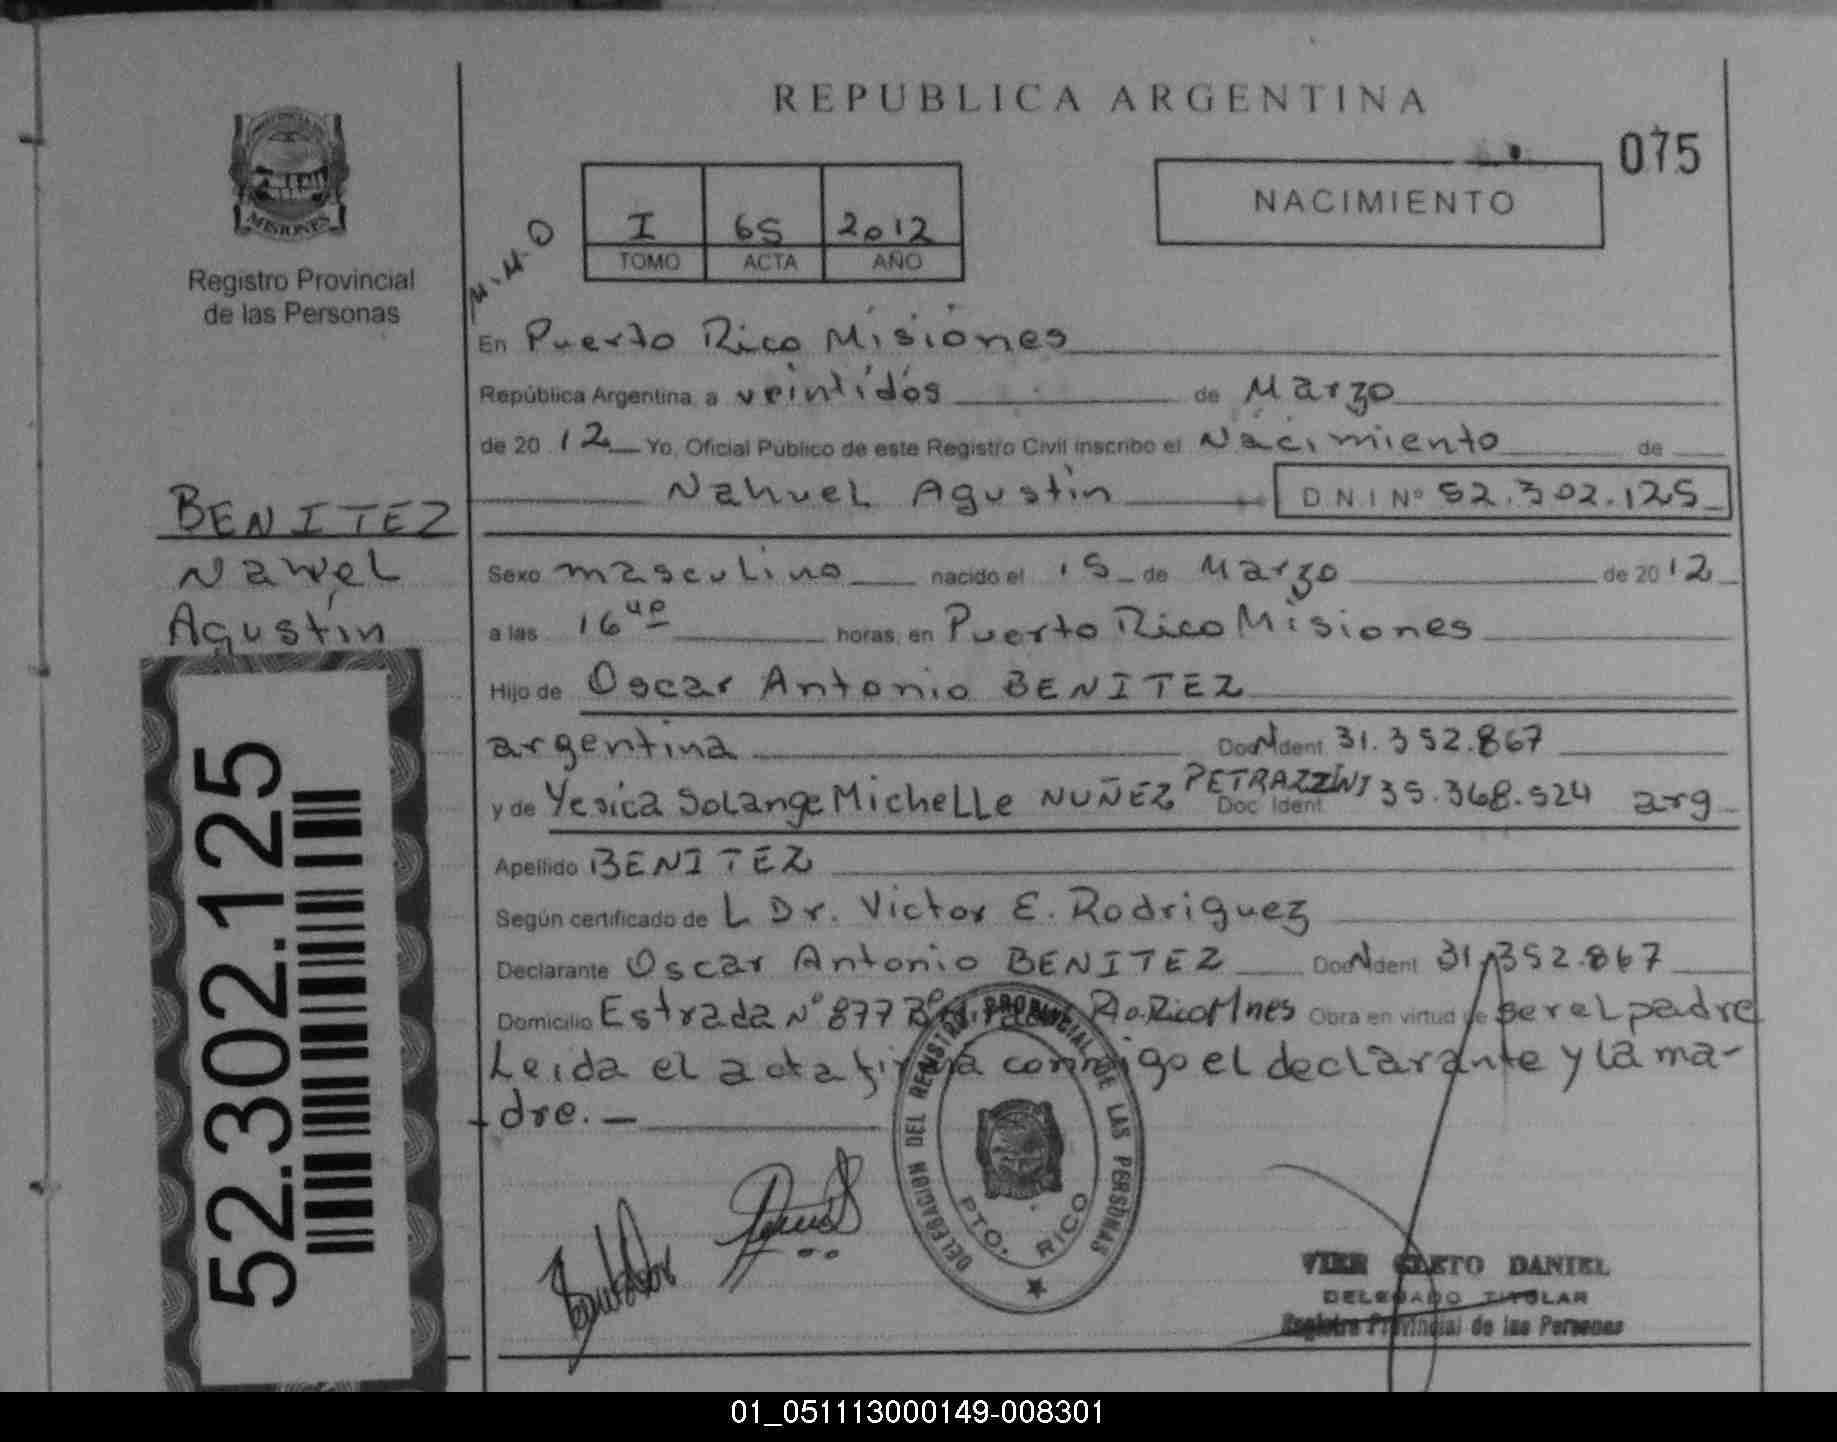 REPUBLICA ARGENTINA
075
NACIMIENTO
I 65 2012
TOMO ACTA AÑO
MISIONES
Registro Provincial
de las Personas
En Puerto Rico Misiones
República Argentina, a veintidós de Marzo
de 20 12 Yo, Oficial Público de este Registro Civil inscribo el Nacimiento de
Nahuel Agustín D.N.I Nº 52.302.125
BENITEZ
Nawel
Agustín
Sexo masculino nacido el 15 de Marzo de 20 12
a las 16 40 horas, en Puerto Rico Misiones
Hijo de Oscar Antonio BENITEZ
argentina Doc Ident 31.352.867
y de Yesica Solange Michelle NUÑEZ PETRAZZINI Doc Ident 35.368.524 arg
Apellido BENITEZ
Según certificado de L Dr. Victor E. Rodriguez
Declarante Oscar Antonio BENITEZ Doc Ident 31.352.867
Domicilio Estrada Nº 877 Pto. Rico Mnes Obra en virtud de ser el padre
Leida el acta firma conmigo el declarante y la ma-
dre.
52.302.125
DELEGACION DEL REGISTRO PROVINCIAL DE LAS PERSONAS
PTO. RICO
VIER CLETO DANIEL
DELEGADO TITULAR
Registro Provincial de las Personas
01_051113000149-008301